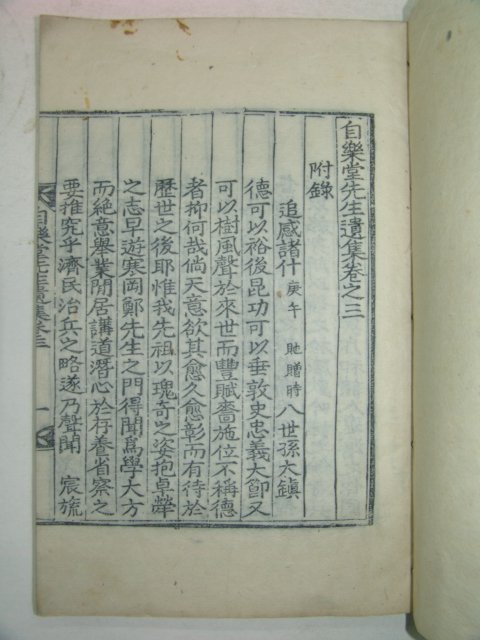 自樂堂先生遺集卷之三
附錄
追感諸什 庚午 貤贈時 八世孫大鎭
德可以裕後昆功可以垂敦史忠義大節又
可以樹風聲於來世而豐賦嗇施位不稱德
者抑何哉倘天意欲其愈久愈彰而有待於
歷世之後耶惟我先祖以瑰奇之姿抱卓犖
之志早遊寒岡鄭先生之門得聞爲學大方
而絶意擧業閒居講道潛心於存養省察之
要推究乎濟民治兵之略遂乃聲聞 宸旒
自樂堂先生遺集卷之三 一